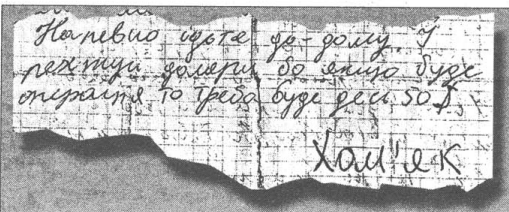 Напевно ідьте до-дому. І
рехтуй доляри бо якшо буде
операція то треба буде десь 50 $,
Хом'як